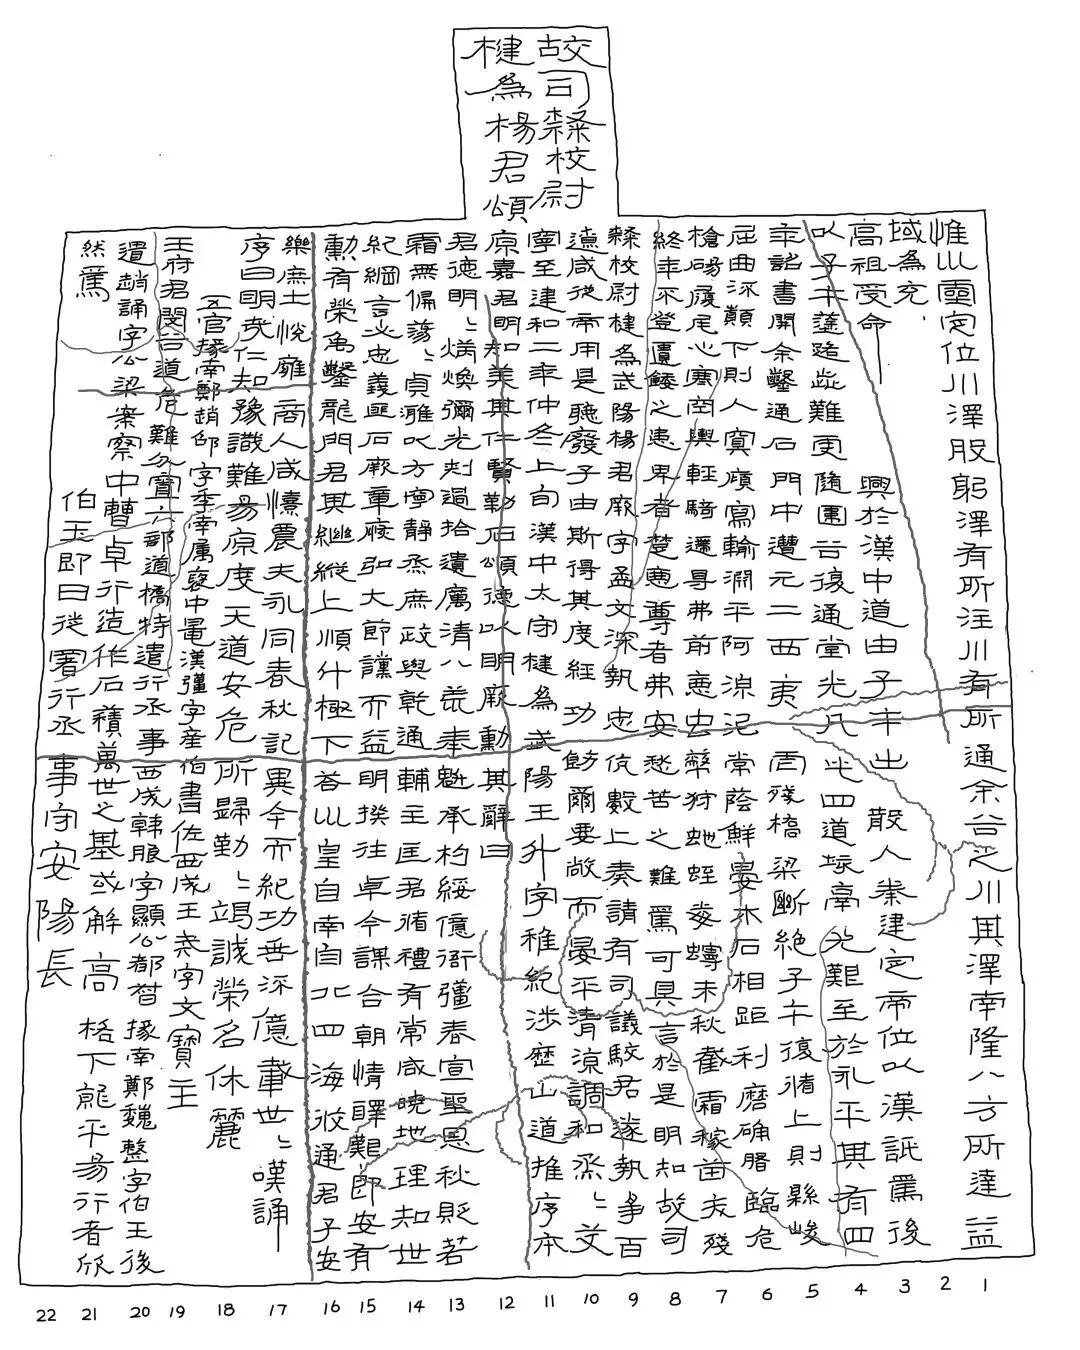 故司隸校尉
楗為楊君頌
惟巛靈定位川澤股躬澤有所注川有所通余谷之川其澤南隆八方所達益
域為充
高祖受命興於漢中道由子午出散入秦建定帝位以漢詆焉後
以子午塗路歰難更隨圍谷復通堂光凡此四道垓鬲尤艱至於永平其有四
年詔書開余鑿通石門中遭元二西夷虐殘橋梁斷絕子午復循上則縣峻
屈曲流顛下則入冥傾寫輸淵平阿淖泥常蔭鮮晏木石相距利磨确磐臨危
槍碭履尾心寒空輿輕騎遰㝵弗前惡虫蔽狩虵蛭毒蟃未秋截霜稼苗夭殘
終年不登匱餧之患卑者楚惡尊者弗安愁苦之難焉可具言於是明知故司
隸校尉楗為武陽楊君厥字孟文深執忠伉數上奏請有司議駮君遂執爭百
遼咸從帝用是聽廢子由斯得其度經功飭爾要敞而晏平清涼調和烝〻艾
寧至建和二年仲冬上旬漢中太守楗為武陽王升字稚紀涉歷山道推序本
原嘉君明知美其仁賢勒石頌德以明厥勳其辭曰
君德明〻炳煥彌光刺過拾遺厲清八荒奉魁承杓綏億衙彊春宣聖恩秋貶若
霜無偏蕩〻貞雅以方寧靜烝庶政與乾通輔主匡君循禮有常咸曉地理知世
紀綱言必忠義匪石厥章恢弘大節讜而益明揆往卓今謀合朝情醳艱即安有
勳有榮禹鑿龍門君其繼縱上順斗極下答巛皇自南自北四海攸通君子安
樂庶士悅雍商人咸憘農夫永同春秋記異今而紀功垂流億載世〻嘆誦
序曰明哉仁知豫識難易原度天道安危所歸勤〻竭誠榮名休麗
五官掾南鄭趙邵字季南屬褒中鼂漢彊字產伯書佐西成王戒字文寶主
王府君閔谷道危難分置六部道橋特遣行丞事西成韓朖字顯公都督掾南鄭魏整字伯玉後
遣趙誦字公梁案察中曹卓行造作石積萬世之基或解高格下就平易行者欣
然焉伯玉即日徙署行丞事守安陽長
22 21 20 19 18 17 16 15 14 13 12 11 10 9 8 7 6 5 4 3 2 1